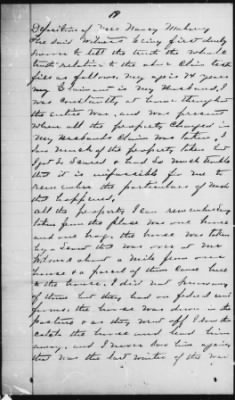 Deposition of Mrs Nancy Mahury
The said witness being first duly
sworn to tell the truth the whole
truth relative to the above Claim testi
fies as follows. My age is 74 years
my Claimant is My Husband, I
was Constantly at home throughout
the entire War, and was present
when all the property Charged in
my Husbands Claim was taken, I
saw much of the property taken but
I got so Scared & had so much trouble
that it is impossible for me to
remember the particulars of much
that happened,
all the property I can remember being
taken from the place was one horse
and one hog. the horse was taken
by a Scout that was over at Mr
about a mile from our
house & a parcel of them came here
to the house. I did not know any
of them but they had on federal uni
forms. the horse was down in the
pasture & as they went off I saw the
catch the horse and lead him
away, and I never saw him again,
this was the last winter of the war